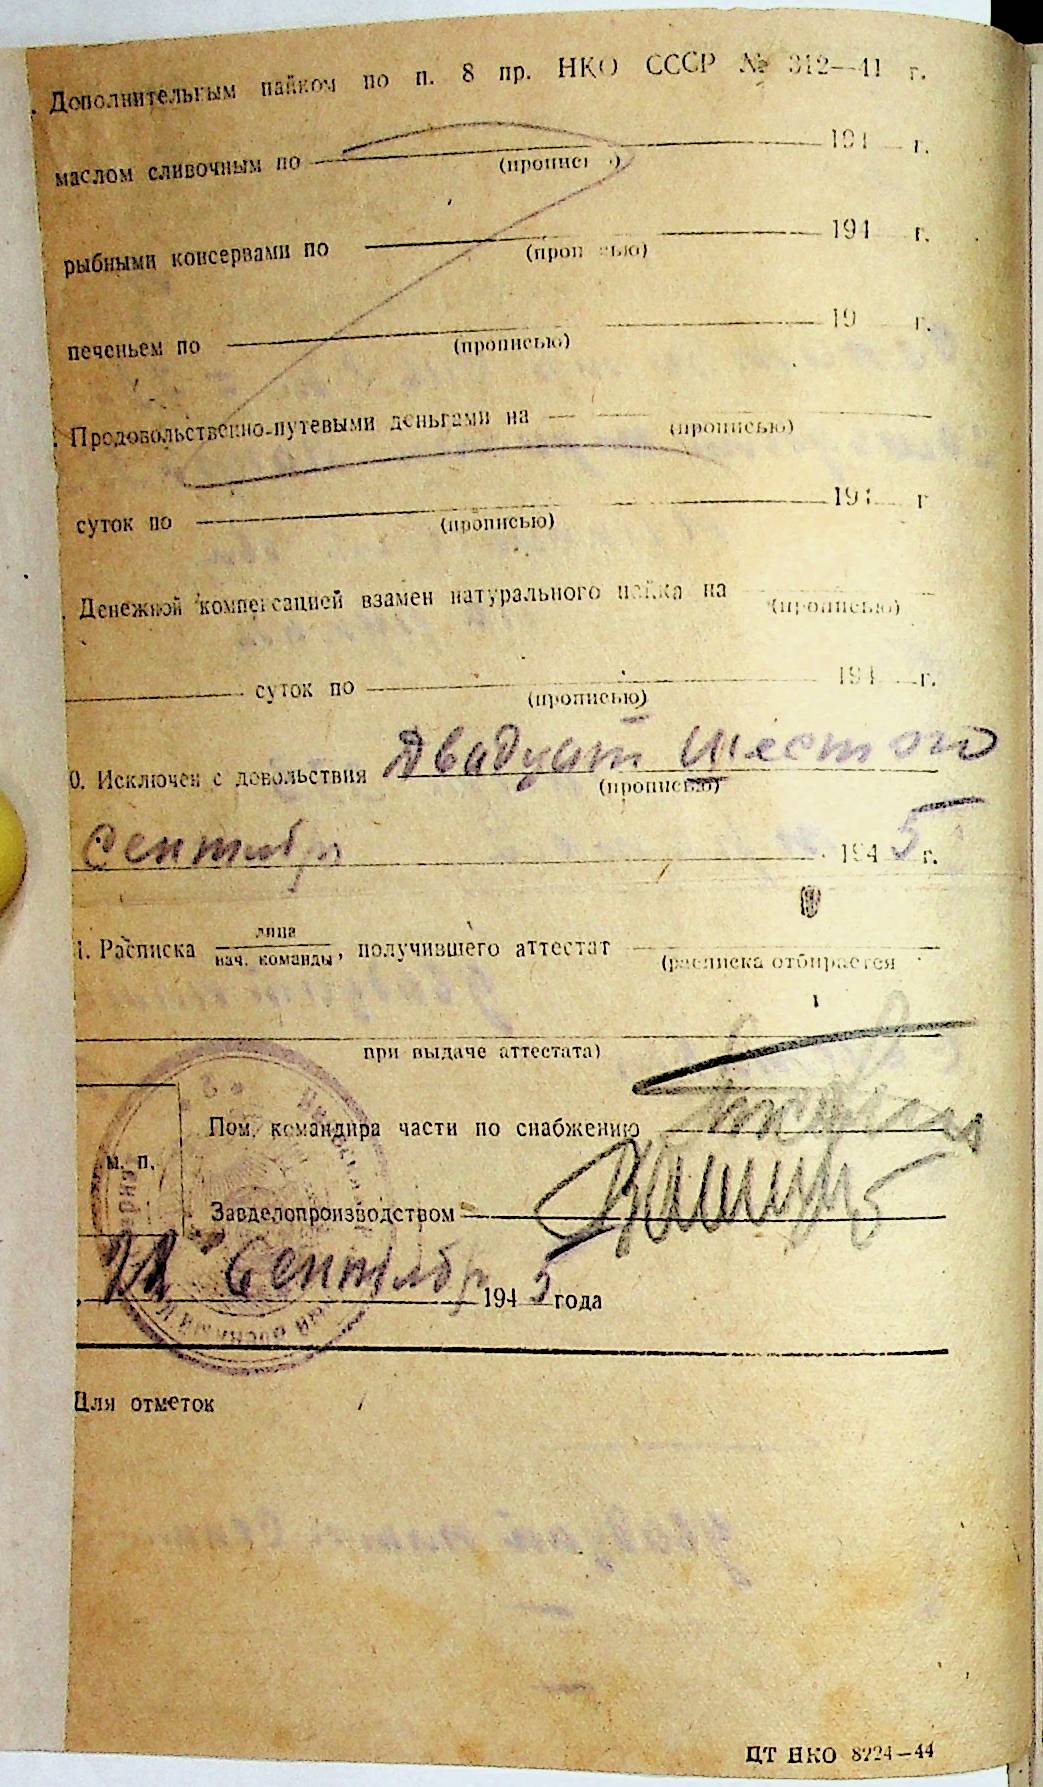 . Дополнительным пайком по п. 8 пр. НКО СССР № 312—41 г.
маслом сливочным по 194 г.
(прописью)
рыбными консервами по 194 г.
(прописью)
печеньем по 19 г.
(прописью)
. Продовольственно-путевыми деньгами на
(прописью)
суток по 194 г
(прописью)
. Денежной компенсацией взамен натурального пайка на
(прописью)
суток по 194 г.
(прописью)
0. Исключен с довольствия Двадцат шестого
(прописью)
Сентябр 194 5 г.
1. Расписка лица
нач. команды, получившего аттестат
(расписка отбирается
при выдаче аттестата)
Пом. командира части по снабжению
м. п.
Завделопроизводством
Сентябр 194 5 года
Для отметок
ЦТ НКО 8224—44